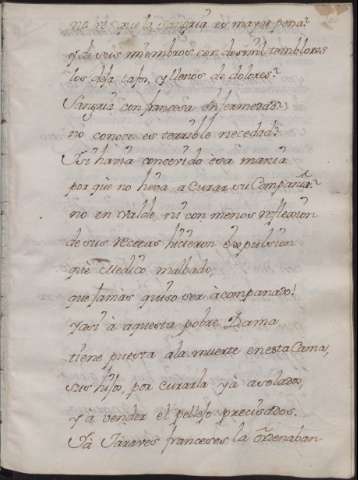 no vé que la sangria es mayor pena?
y si sus miembros con desmil temblores
los desa lasos, y llenos de dolores?
Sangria con francesa enfermedad?
no conoce es terrible necedad?
Asi havia concevido esta mania
por que no lleva a curar su Compañia?
no en valde, ni con menos reflexion
de sus receras hicieron expulsion
que Medico malvado,
que jamás quiso ser acompañado!
y asi à aquesta pobre Dama
tiene puesta ala muerte en esta Cama,
sus hijos, por curarla ya asolados
y à vender el pellejo precisados.
Ya Jaraves franceses la ordenaban